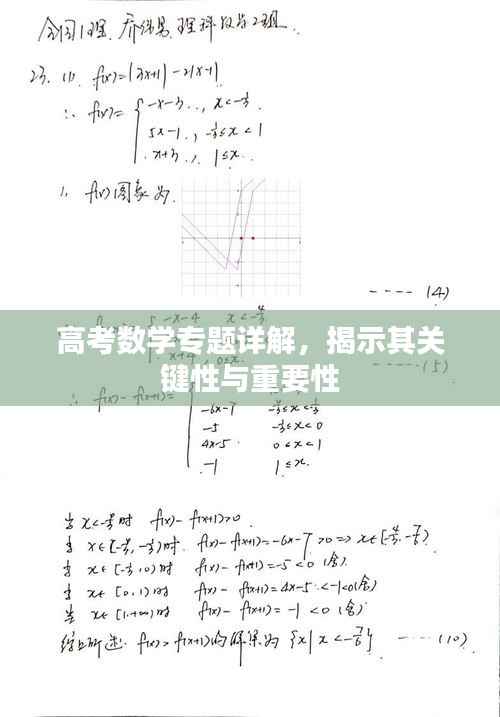 全国1理. 乔纬易. 理科数学2组.
23. (1). f(x)=|3x+1|-2|x-1|
∴ f(x)= { -x-3 . , x<-1/3 .
5x-1 . , -1/3≤x<1
x+3 . , 1≤x .
f(x)图象为.
---- (4)
-x-4 x<-4/3
高考数学专题详解,揭示其关
键性与重要性
x+4 0≤x
---- (5)
f(x)-f(x+1)=
-6x-7 -4/3≤x<-1/3
-5 -1/3≤x<0
4x-5 0≤x<1
-1 1≤x.
当 x<-4/3时 f(x)-f(x+1)>0.
当 x∈[-4/3,-1/3)时. f(x)-f(x+1)=-6x-7>0 => x∈[-4/3,-7/6)
当 x∈[-1/3,0)时 f(x)-f(x+1)=-5<0 (舍)
当 x∈[0,1)时 f(x)-f(x+1)=4x-5<-1<0(舍)
当 x∈[1,+∞)时 f(x)-f(x+1)=-1<0 (舍)
综上所述. f(x)>f(x+1)的解集为 {x|x<-7/6} ---- (10)